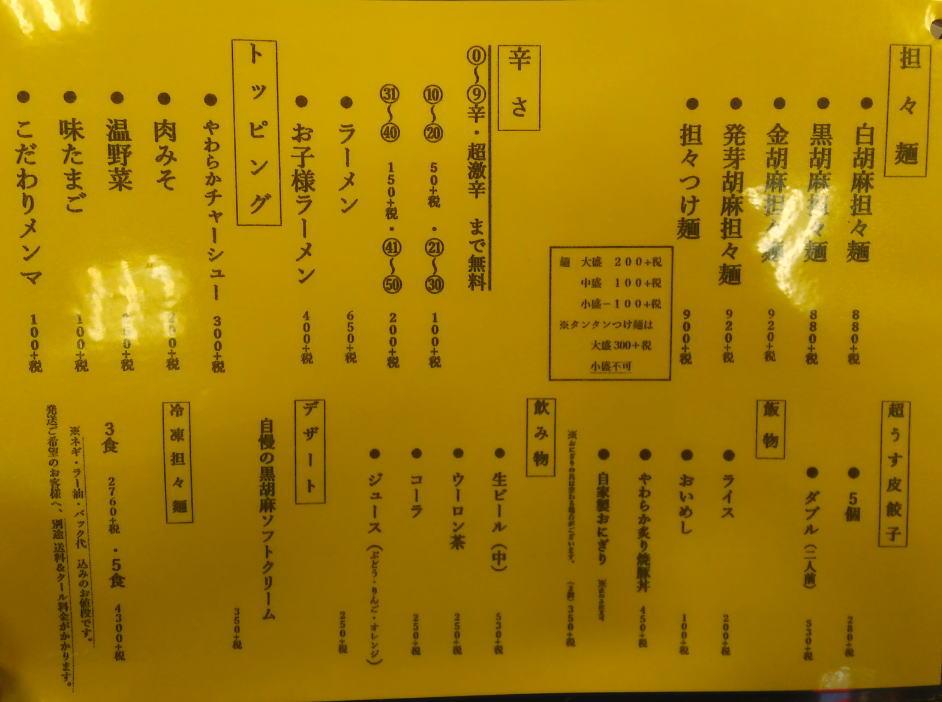 担々麺
●白胡麻担々麺 880+税
●黒胡麻担々麺 880+税
●金胡麻担々麺 920+税
●発芽胡麻担々麺 920+税
●担々つけ麺 900+税
麺 大盛 200+税
中盛 100+税
小盛-100+税
※タンタンつけ麺は
大盛300+税
小盛不可
辛さ
⓪〜⑨辛・超激辛 まで無料
⑩〜⑳ 50+税 ・㉑〜㉚ 100+税
㉛〜㊵ 150+税・㊶〜㊿ 200+税
●ラーメン 650+税
●お子様ラーメン 400+税
トッピング
●やわらかチャーシュー 300+税
●肉みそ 00+税
●温野菜 50+税
●味たまご 100+税
●こだわりメンマ 100+税
超うす皮餃子
●5個 280+税
●ダブル(二人前) 530+税
飯物
●ライス 200+税
●おいめし 100+税
●やわらか炙り焼豚丼 450+税
●自家製おにぎり
350+税
飲み物
●生ビール(中) 530+税
●ウーロン茶 250+税
●コーラ 250+税
●ジュース(ぶどう・りんご・オレンジ) 250+税
デザート
自慢の黒胡麻ソフトクリーム 350+税
冷凍担々麺
3食 2760+税 ・5食 4300+税
※ネギ・ラー油・パック代 込みのお値段です。
発送ご希望のお客様へ、別途 送料&クール料金がかかります。